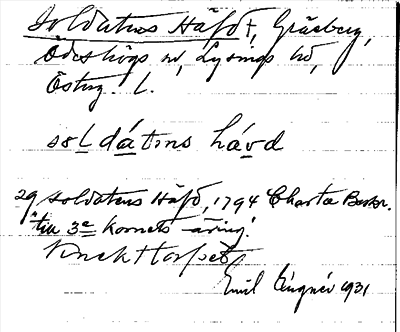 Soldatens Häfd †, Gråberg,
Ödeshögs sn, Lysings hd,
Österg. l.
soldátns hávd
29 soldatens Häfd, 1794 Charta Beskr.
till 3e Kornets-äring.
Emil Lingnér 1931